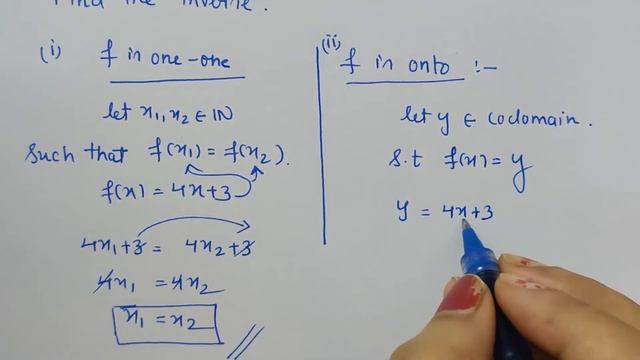 Find the inverse.
(i) f in one-one
let x₁, x₂ ∈ IN
Such that f(x₁) = f(x₂).
f(x) = 4x+3
4x₁+3 = 4x₂+3
4x₁ = 4x₂
x₁ = x₂
(ii) f in onto :-
let y ∈ codomain.
s.t f(x) = y
y = 4x+3